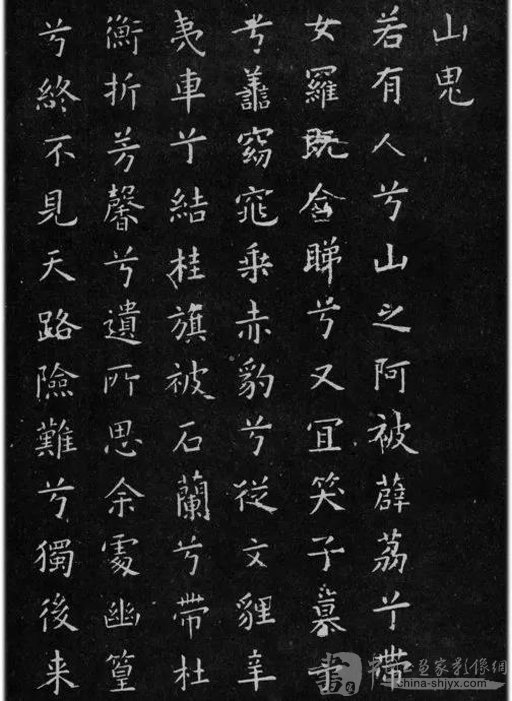 山鬼
若有人兮山之阿被薜荔兮帶
女羅既含睇兮又冝笑子慕予
兮譱窈窕乘赤豹兮從文貍辛
夷車兮結桂旗被石蘭兮帶杜
衡折芳馨兮遺所思余處幽篁
兮終不見天路險難兮獨後来
画家影像網
china-shjyx.com